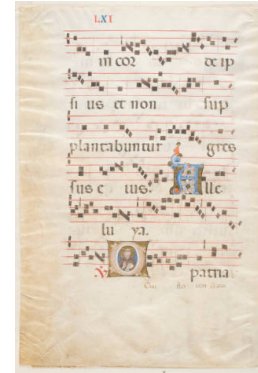 LXI
in cor de ip
si us et non sup
plantabuntur gres
sus e ius. Alle
lu ya.
O patria